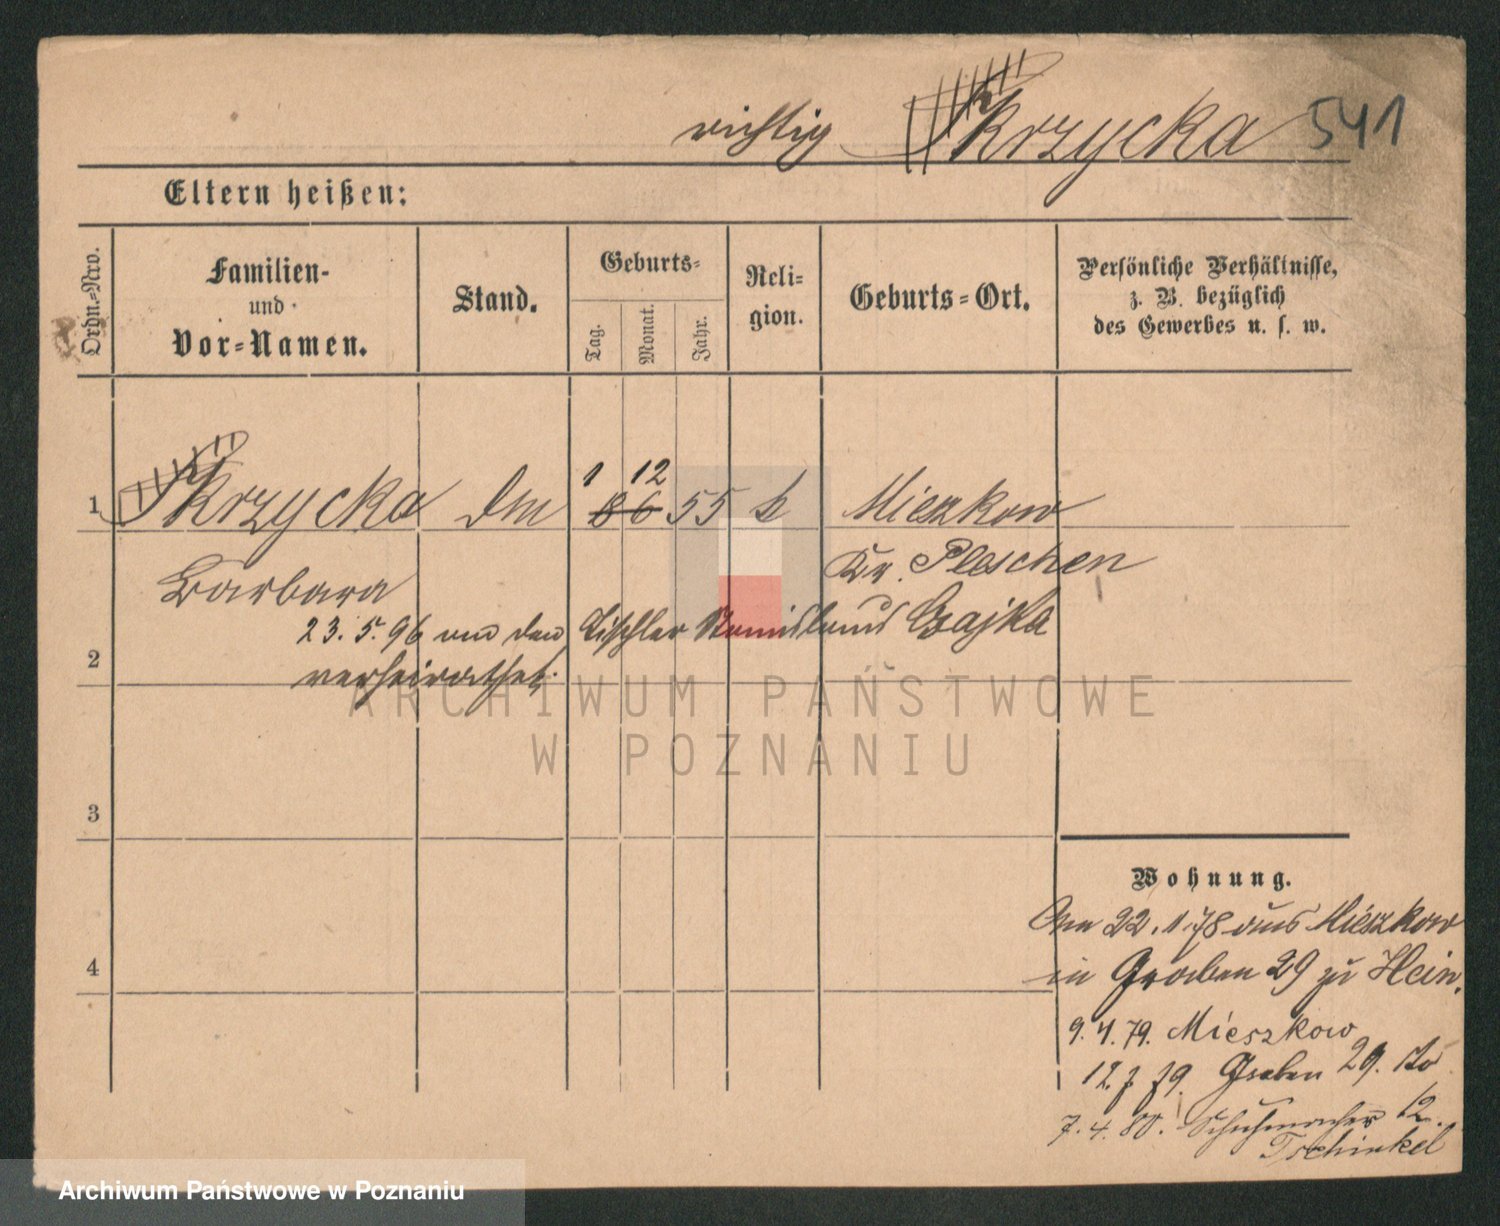 richtig Skrzycka 541
Eltern heißen:
Ordn.-Nro.
Familien-
und
Vor-Namen.
Stand.
Geburts-
Tag. Monat. Jahr.
Reli-
gion.
Geburts-Ort.
Persönliche Verhältnisse,
z. B. bezüglich
des Gewerbes u. s. w.
1 12
1 Skrzycka 18 6 55 k Mieszkow
Barbara Kr. Pleschen
23. 5. 96 an den Tischler Stanislaus Gajka
2 verheirathet.
ARCHIWUM PAŃSTWOWE
W POZNANIU
3
4
Wohnung.
22. 1. 78 aus Mieszkow
in Graben 29 zu Hein.
9. 4. 79. Mieszkow
12. 7. 79. Graben 29.
7. 4. 80. Schuhmacher 12.
Tschinkel
Archiwum Państwowe w Poznaniu